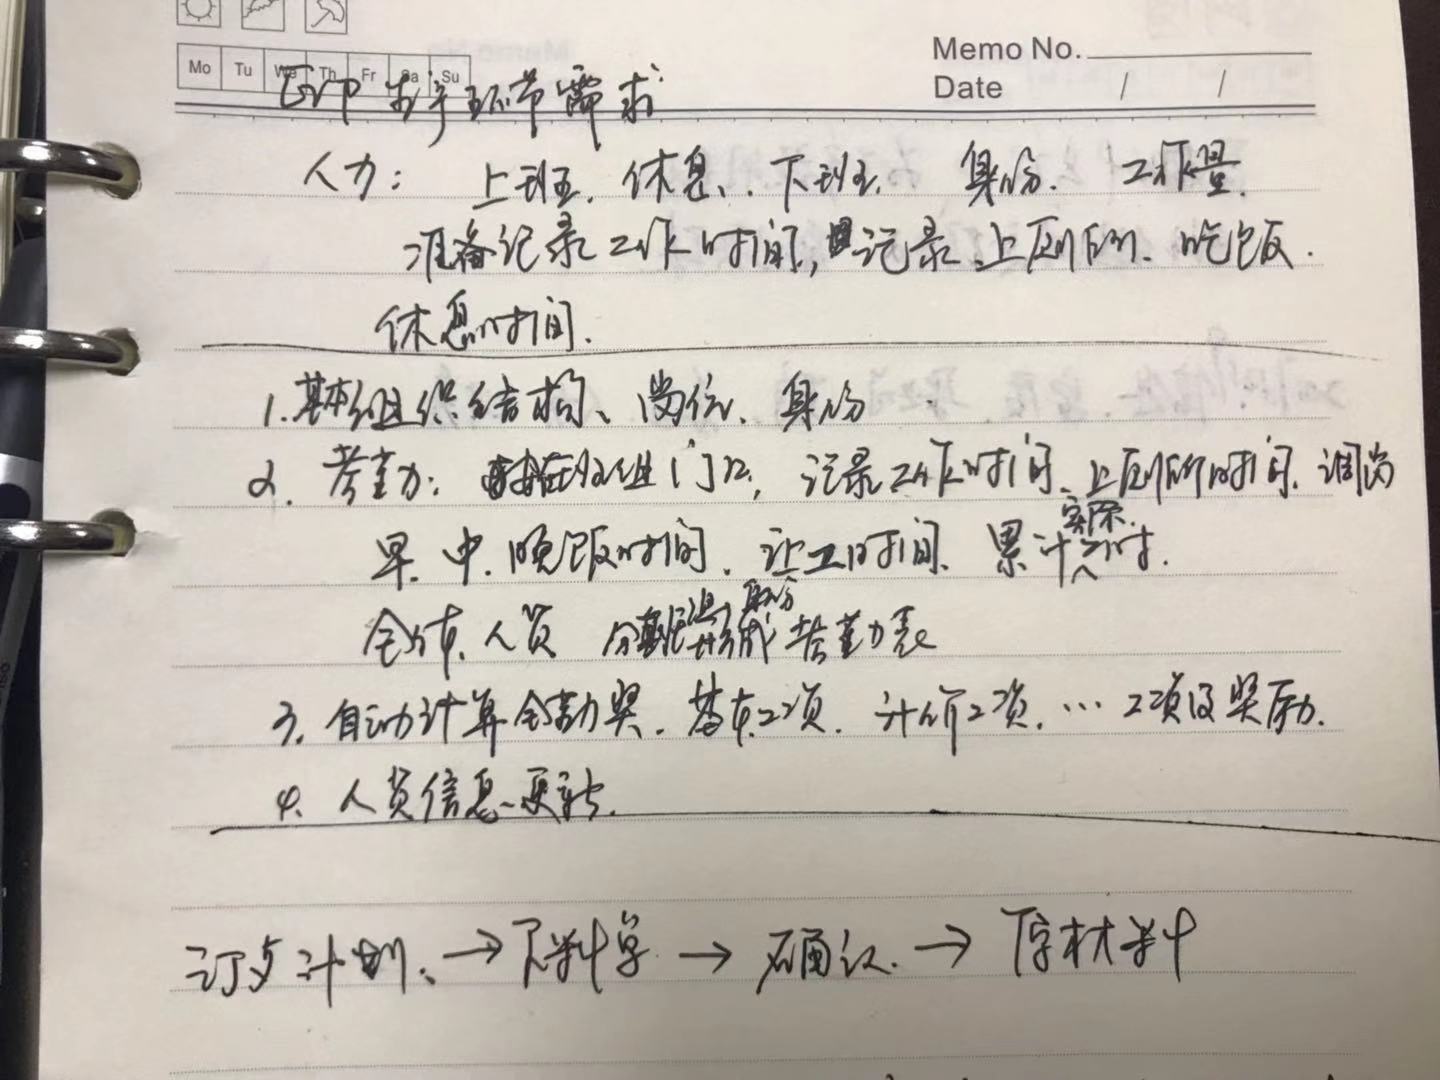 Memo No.
Mo Tu We Th Fr Sa Su
Date / /
环节需求
人力: 上班. 休息、下班. 身份. 工作量.
准备记录工作时间, 记录上厕所、吃饭.
休息时间.
1.基本组织结构、岗位、身份
2. 考勤: 门口, 记录工作时间、上厕所时间、调岗
早.中.晚饭时间、让工时间、累计实际工时.
全体人员 形成考勤表
3. 自动计算全勤奖. 基本工资. 计价工资. … 工资及奖励.
4. 人员信息更新.
计划、→下料单 → 确认. → 原材料